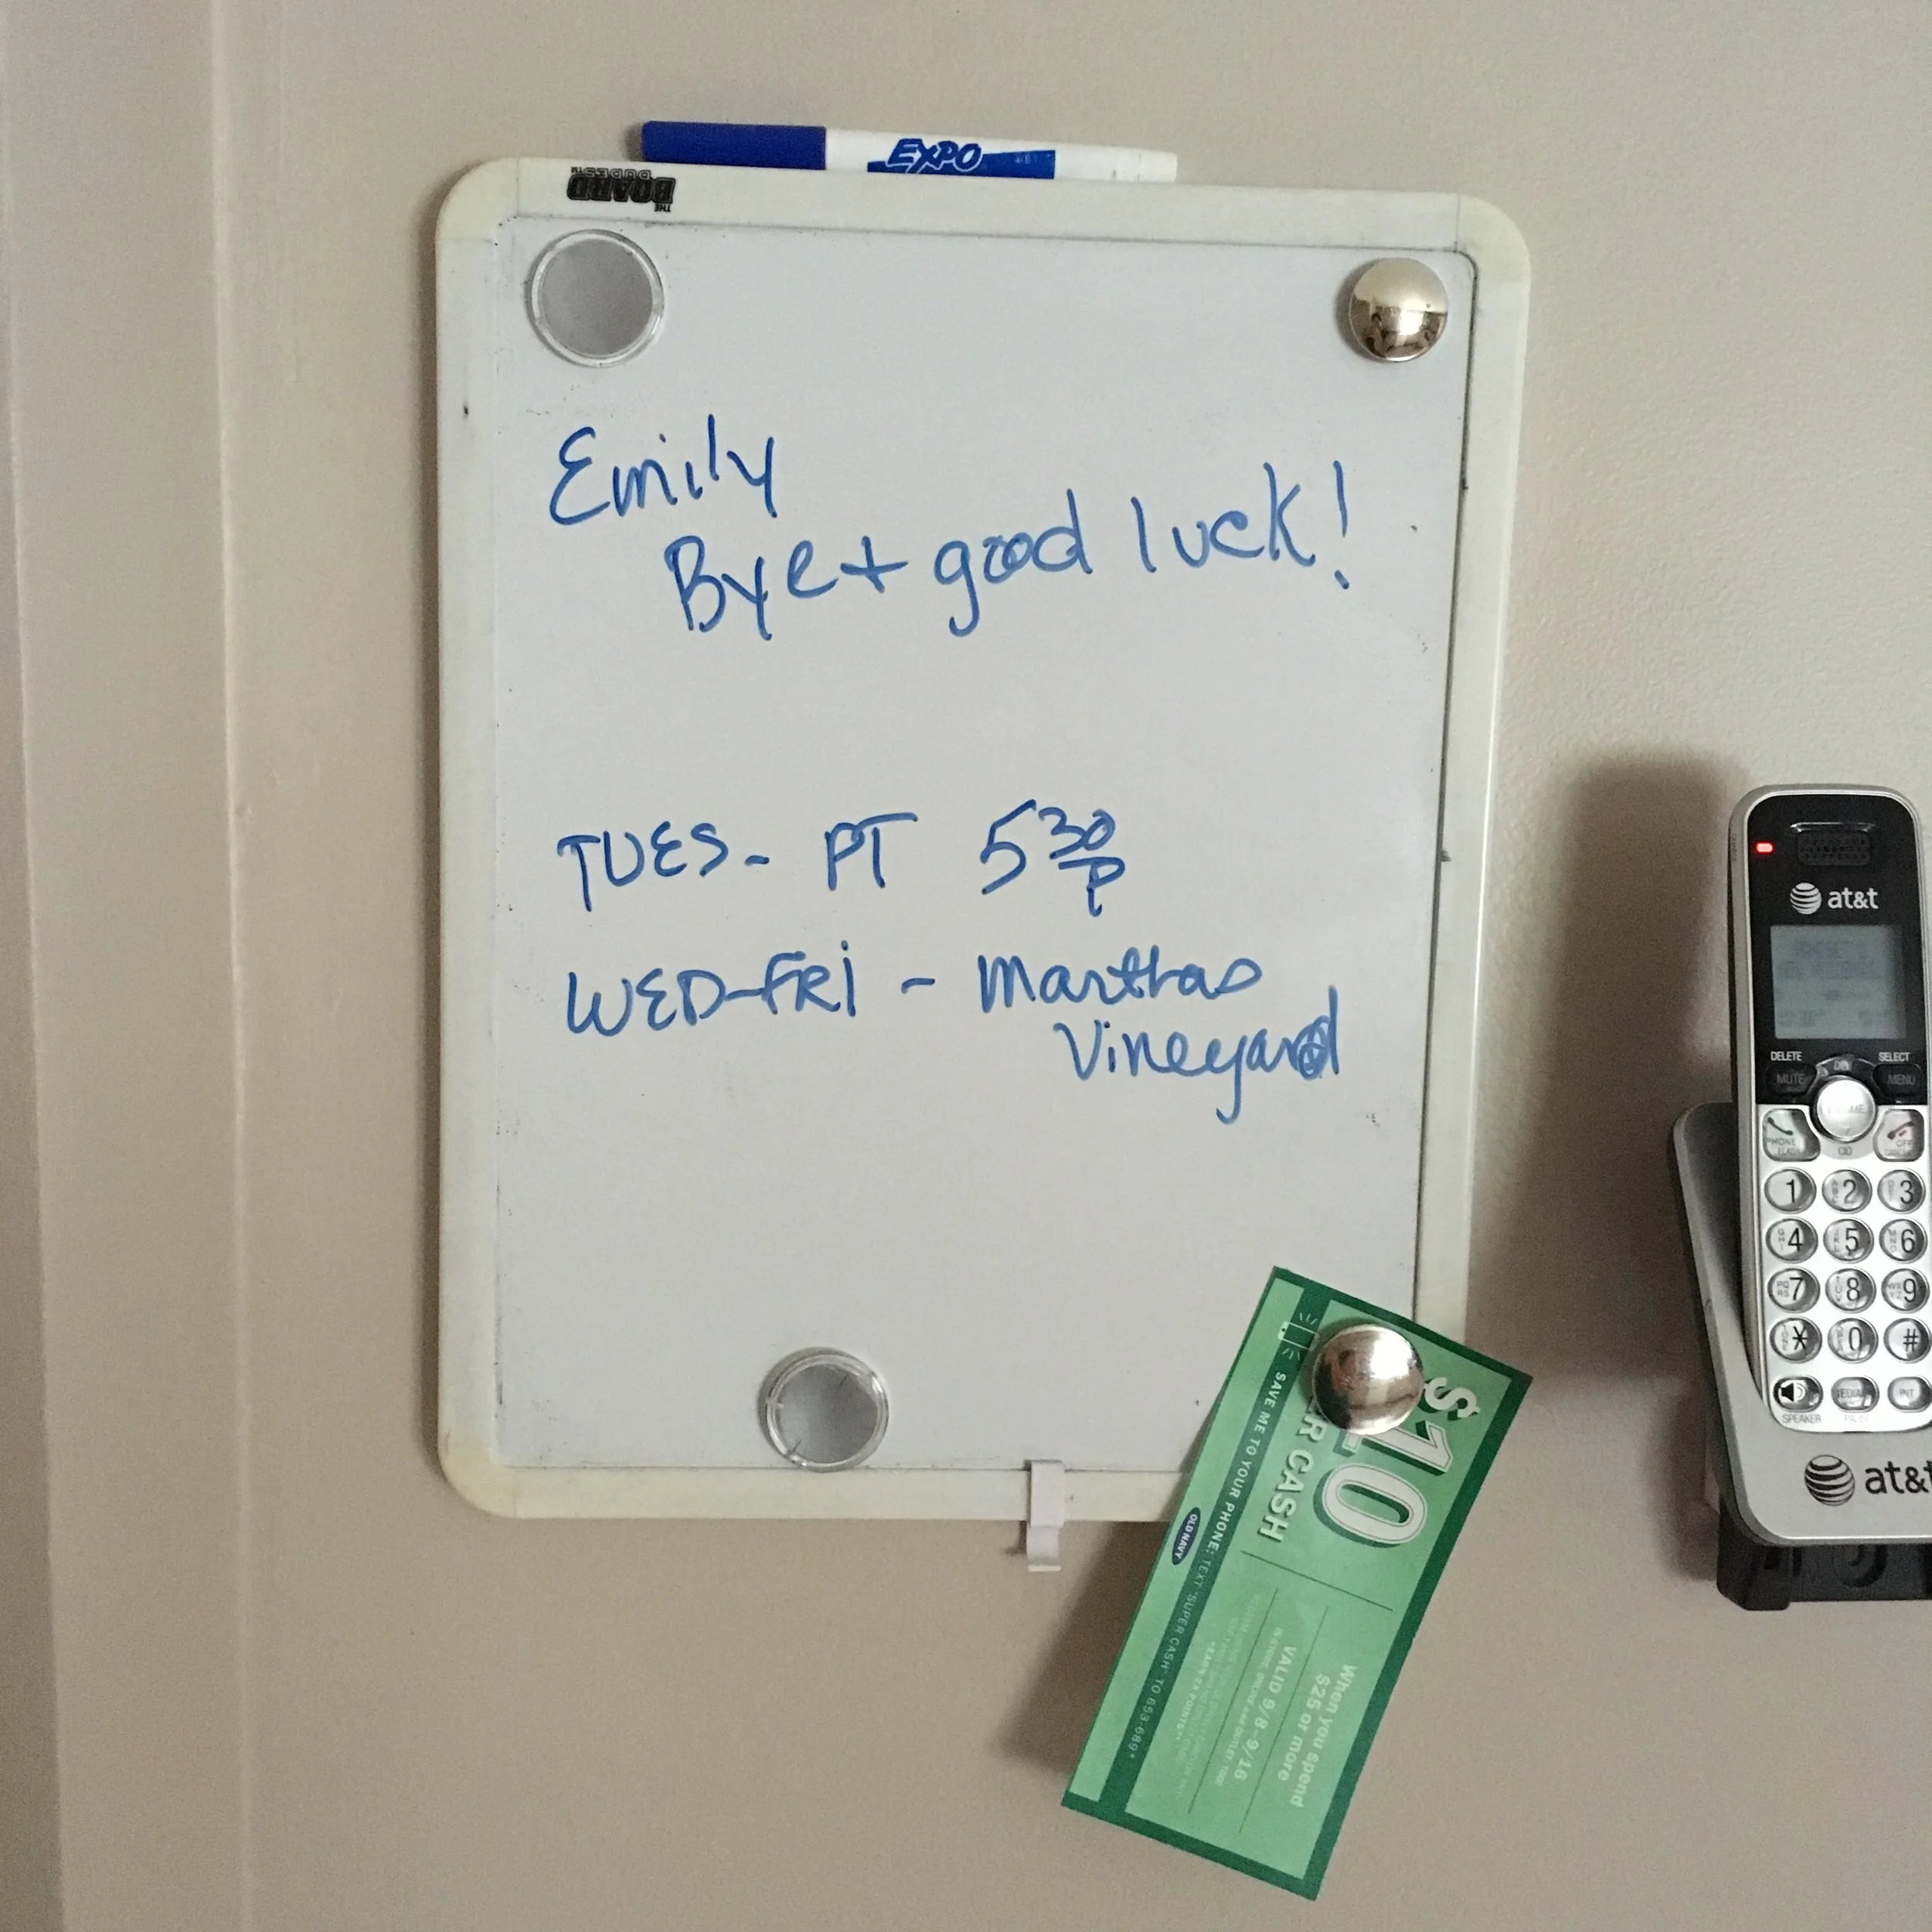 EXPO
THE
BOARD
DUDES
Emily
Bye + good luck!
TUES - PT 5 30 P
WED-FRI - Marthas
Vineyard
$10
CASH
SAVE ME TO YOUR PHONE: TEXT "SUPER CASH" TO 653-689*
OLD NAVY
When you spend
$25 or more
VALID 9/8-9/16
at&t
DELETE
SELECT
MUTE
MENU
PHONE
OFF
CID
1 2 3
4 5 6
7 8 9
* 0 #
SPEAKER
INT
at&t